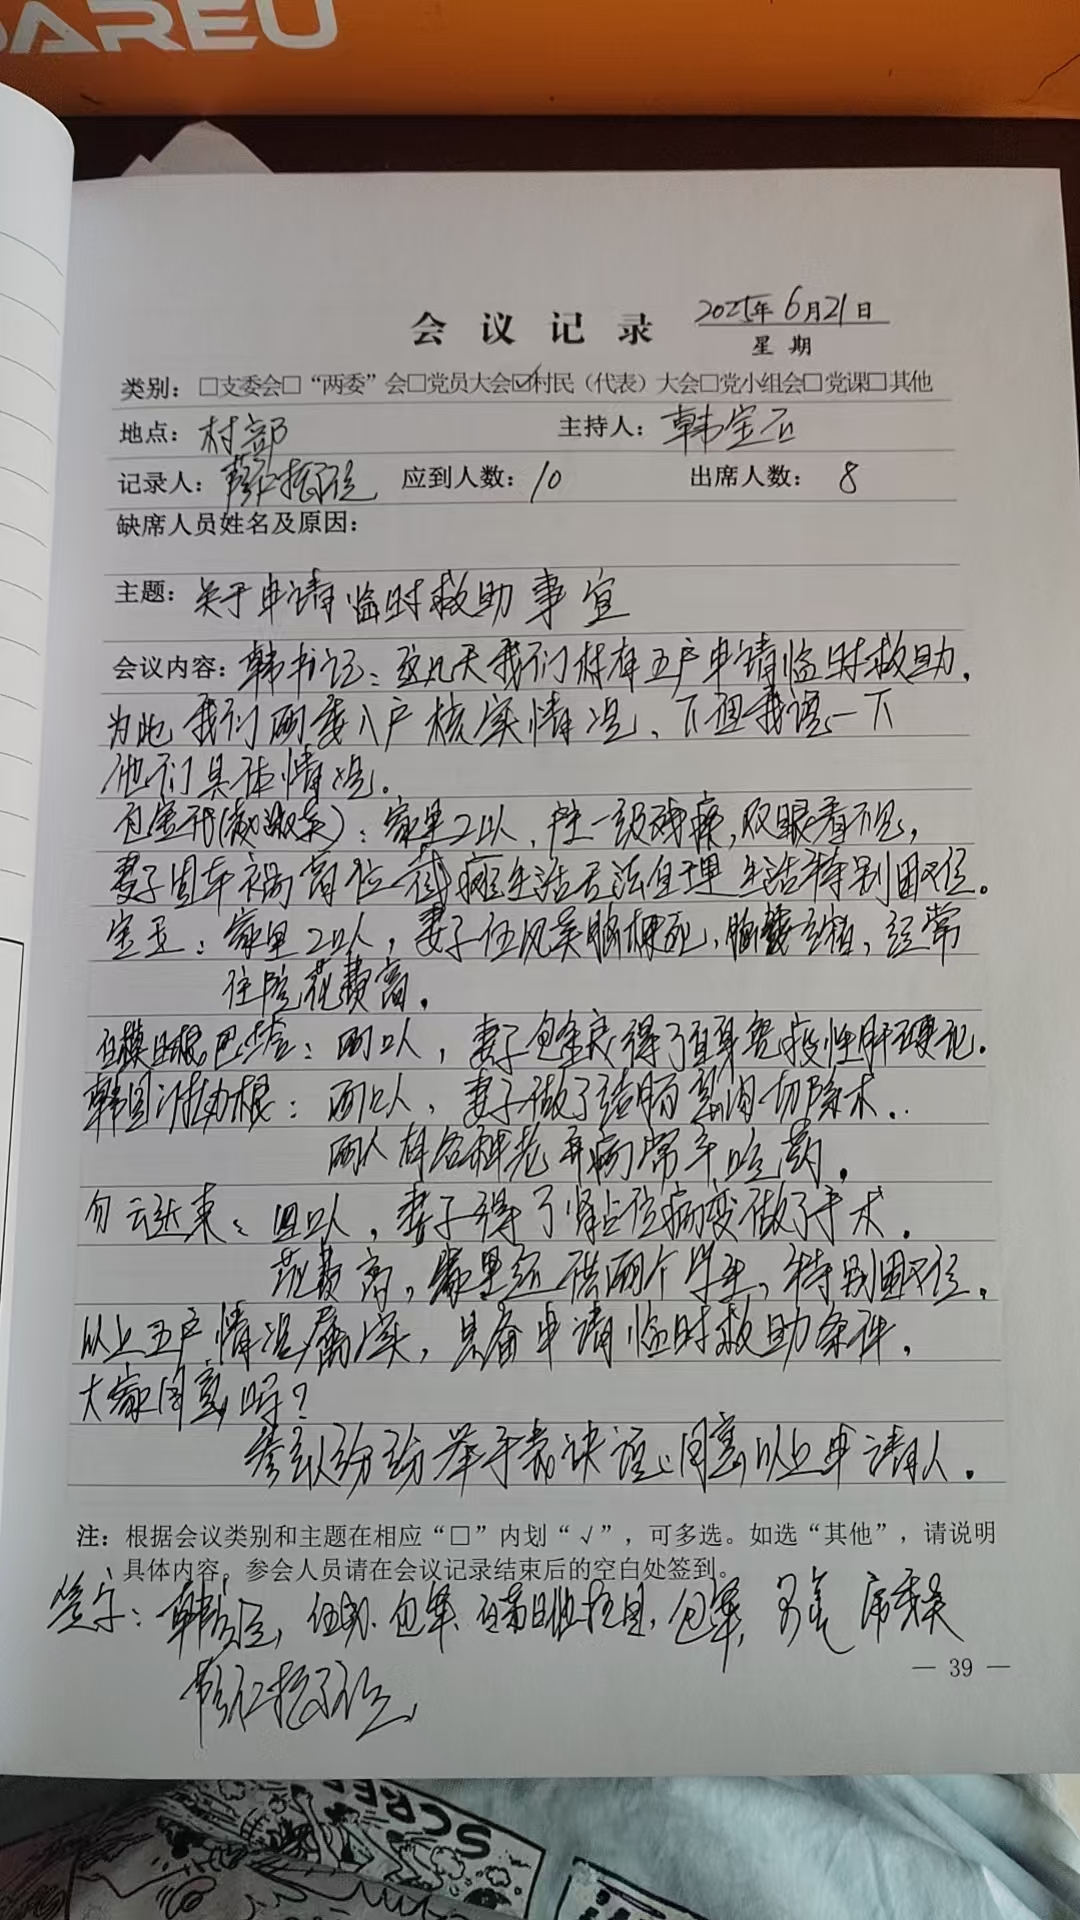 DAREU
会议记录 2025年6月21日
星期
类别：□支委会□“两委”会□党员大会☑村民（代表）大会□党小组会□党课□其他
地点：村部 主持人：韩宝石
记录人： 应到人数：10 出席人数：8
缺席人员姓名及原因：
主题：关于申请临时救助事宜
会议内容：韩书记：这几天我们村有五户申请临时救助，
为此我们两委入户核实情况、下面我说一下
他们具体情况。
：家里2口人，户主一级残疾，双眼看不见，
妻子因车祸高位截瘫生活无法自理 生活特别困难。
宝玉：家里2口人，妻子任凤英脑梗死，经常
住院花费高。
：两口人，妻子包金良得了自身免疫性肝硬化。
：两口人，妻子做了结肠息肉切除术..
两人有各种老年病常年吃药。
：四口人，妻子得了肾占位病变做了手术，
花费高，家里还供两个学生，特别困难。
以上五户情况属实，具备申请临时救助条件，
大家同意吗？
参会人纷纷举手表决 同意以上申请人。
注：根据会议类别和主题在相应“□”内划“√”，可多选。如选“其他”，请说明
具体内容。参会人员请在会议记录结束后的空白处签到。
签字：
— 39 —
SCRE